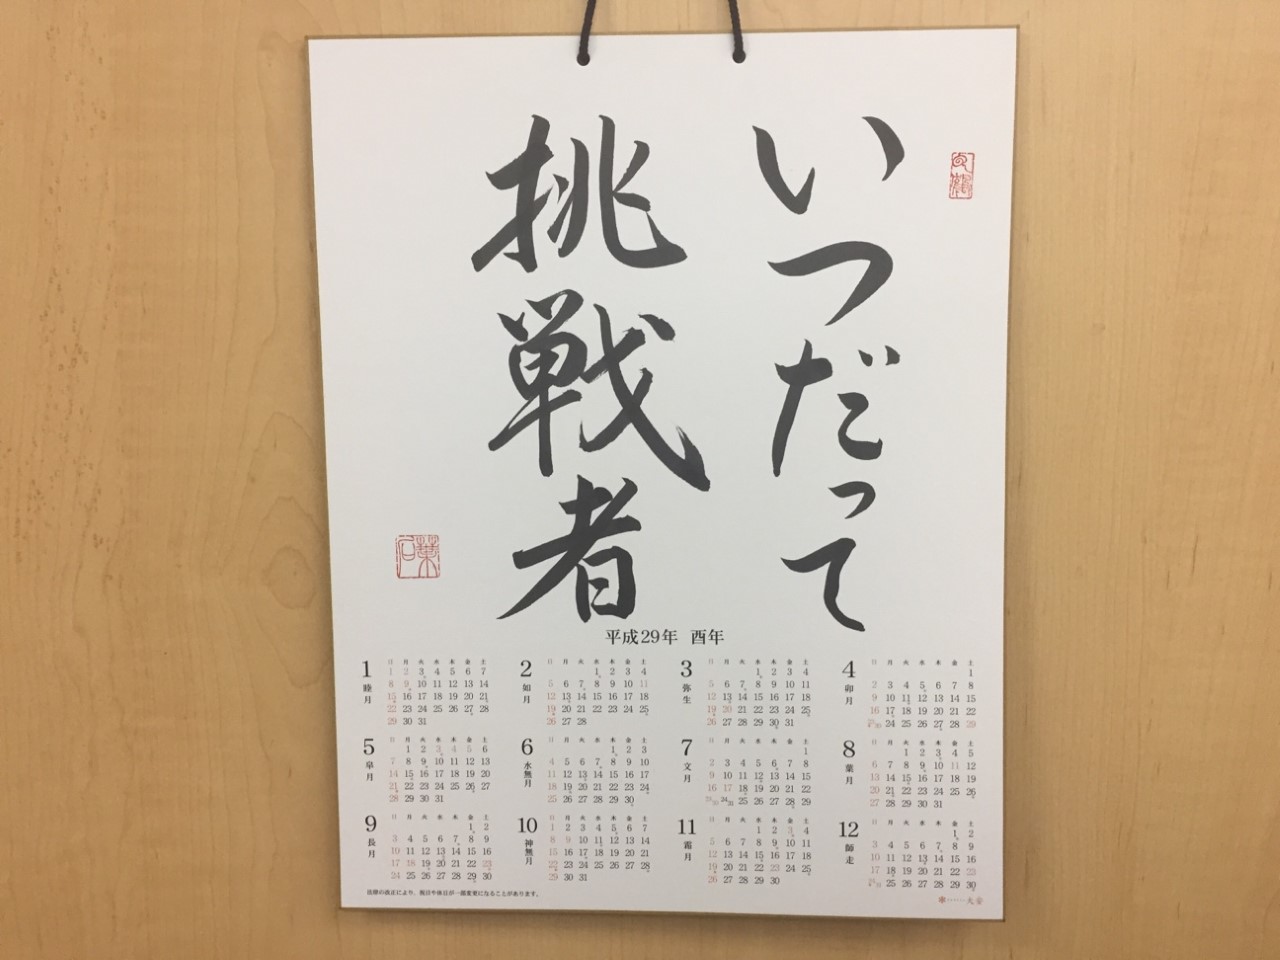 いつだって
挑戦者
平成29年 酉年
1 睦月
日 月 火 水 木 金 土
1 2 3 4 5 6 7
8 9 10 11 12 13 14
15 16 17 18 19 20 21
22 23 24 25 26 27 28
29 30 31
2 如月
日 月 火 水 木 金 土
1 2 3 4
5 6 7 8 9 10 11
12 13 14 15 16 17 18
19 20 21 22 23 24 25
26 27 28
3 弥生
日 月 火 水 木 金 土
1 2 3 4
5 6 7 8 9 10 11
12 13 14 15 16 17 18
19 20 21 22 23 24 25
26 27 28 29 30 31
4 卯月
日 月 火 水 木 金 土
1
2 3 4 5 6 7 8
9 10 11 12 13 14 15
16 17 18 19 20 21 22
23/30 24 25 26 27 28 29
5 皐月
日 月 火 水 木 金 土
1 2 3 4 5 6
7 8 9 10 11 12 13
14 15 16 17 18 19 20
21 22 23 24 25 26 27
28 29 30 31
6 水無月
日 月 火 水 木 金 土
1 2 3
4 5 6 7 8 9 10
11 12 13 14 15 16 17
18 19 20 21 22 23 24
25 26 27 28 29 30
7 文月
日 月 火 水 木 金 土
1
2 3 4 5 6 7 8
9 10 11 12 13 14 15
16 17 18 19 20 21 22
23/30 24/31 25 26 27 28 29
8 葉月
日 月 火 水 木 金 土
1 2 3 4 5
6 7 8 9 10 11 12
13 14 15 16 17 18 19
20 21 22 23 24 25 26
27 28 29 30 31
9 長月
日 月 火 水 木 金 土
1 2
3 4 5 6 7 8 9
10 11 12 13 14 15 16
17 18 19 20 21 22 23
24 25 26 27 28 29 30
10 神無月
日 月 火 水 木 金 土
1 2 3 4 5 6 7
8 9 10 11 12 13 14
15 16 17 18 19 20 21
22 23 24 25 26 27 28
29 30 31
11 霜月
日 月 火 水 木 金 土
1 2 3 4
5 6 7 8 9 10 11
12 13 14 15 16 17 18
19 20 21 22 23 24 25
26 27 28 29 30
12 師走
日 月 火 水 木 金 土
1 2
3 4 5 6 7 8 9
10 11 12 13 14 15 16
17 18 19 20 21 22 23
24/31 25 26 27 28 29 30
法律の改正により、祝日や休日が一部変更になることがあります。
✽……大安